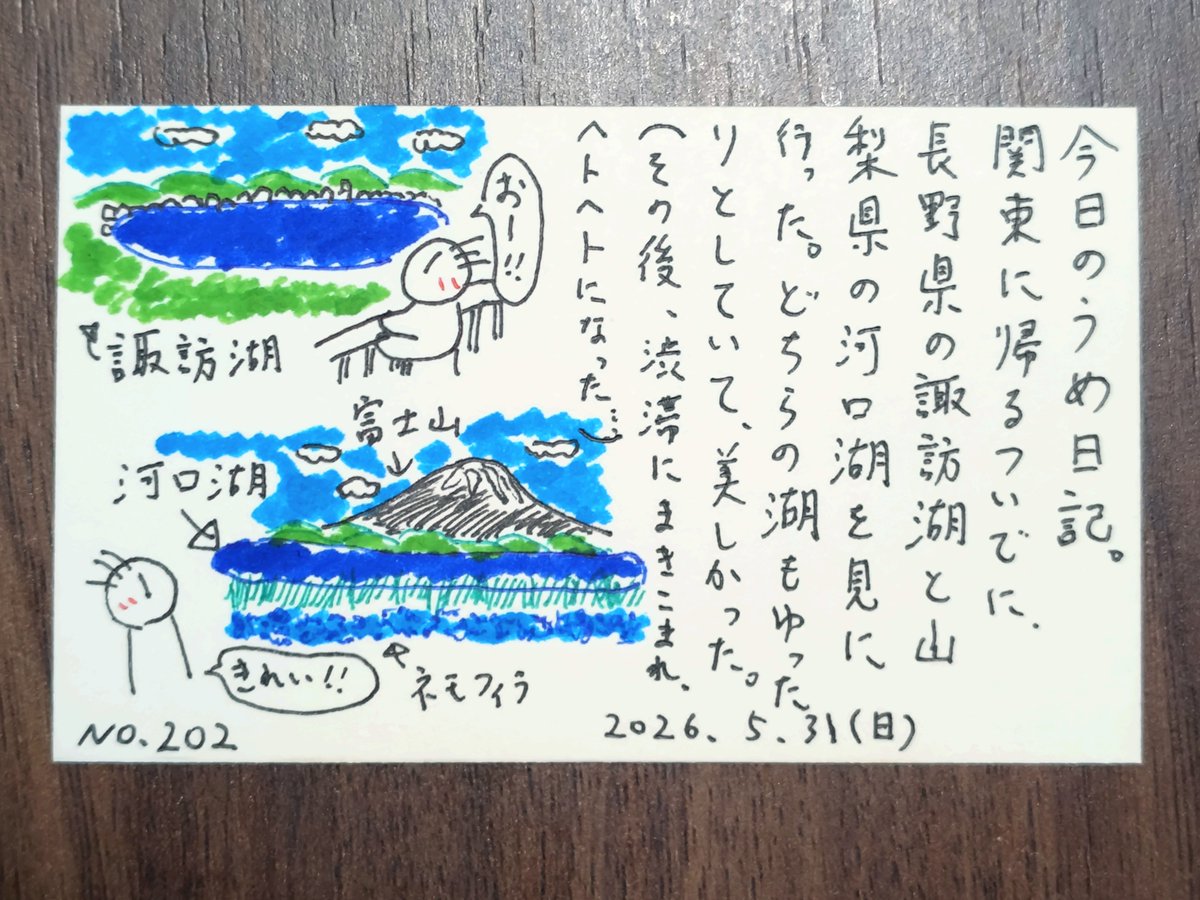 今日のうめ日記。
関東に帰るついでに、
長野県の諏訪湖と山
梨県の河口湖を見に
行った。どちらの湖もゆった
りとしていて、美しかった。
(その後、渋滞にまきこまれ、
ヘトヘトになった…)
おー!!
諏訪湖
富士山
河口湖
きれい!!
ネモフィラ
NO.202
2026.5.31(日)